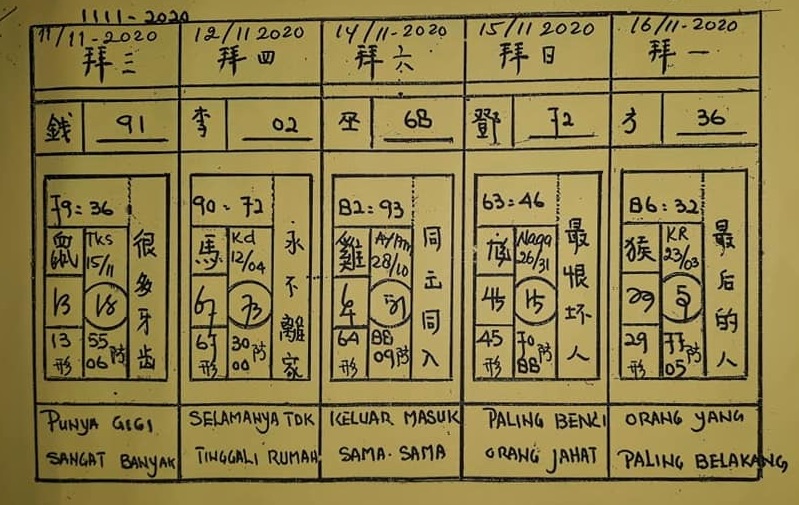 1111-2020
11/11-2020
拜三
12/11 2020
拜四
14/11-2020
拜六
15/11 2020
拜日
16/11-2020
拜一
錢 91
李 02
巫 68
鄧 72
方 36
79=36
鼠
Tks
15/11
13
18
13
形
55
06
防
很多牙齿
90-72
馬
Kd
12/04
67
73
67
形
30
00
防
永不離家
B2=93
雞
AyAm
28/10
64
形
BB
09
防
同出同入
63=46
Naga
26/31
45
15
45
形
70
BB
防
最恨坏人
B6=32
猴
KR
23/03
29
29
形
77
05
防
最后的人
PUNYA GIGI
SANGAT BANYAK
SELAMANYA TDK
TINGGALI RUMAH
KELUAR MASUK
SAMA-SAMA
PALING BENCI
ORANG JAHAT
ORANG YANG
PALING BELAKANG